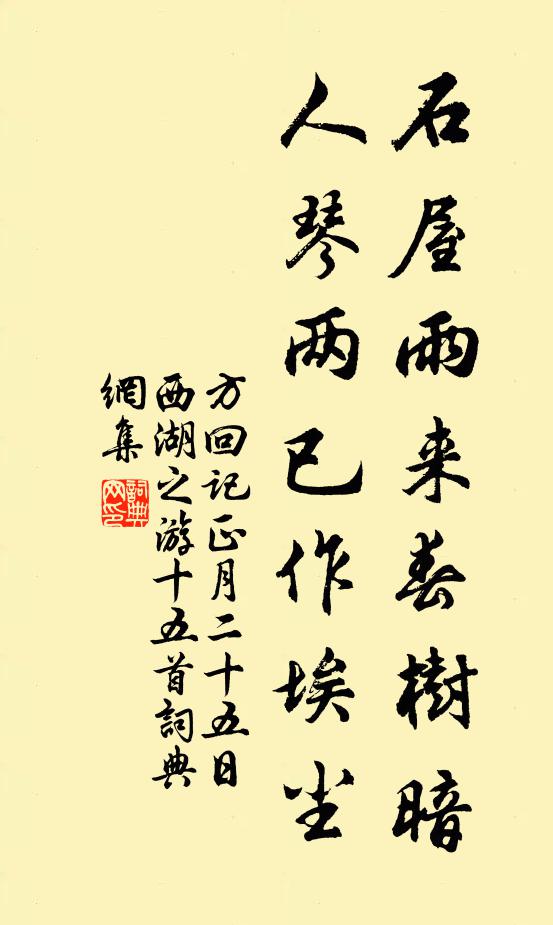 石屋雨来春樹暗
人琴两已作埃尘
方回記正月二十五日
西湖之游十五首詞典
網集
詞典網印